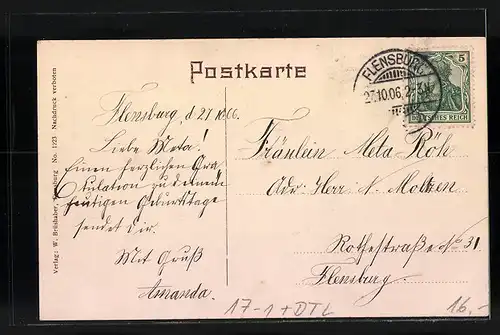 Postkarte
FLENSBURG
27.10.06.
5
DEUTSCHES REICH
Flensburg, d 27 10 06.
Liebe Meta!
Einen herzlichen Gra
tulation zu deinem
heutigen Geburtstage
sendet dir.
Mit Gruß
Amanda.
Fräulein Meta Röh
Adr. Herr N. Moltzen
Rothestraße No 31
Flensburg.
Verlag: W. Brüshaber, Flensburg No. 1123 Nachdruck verboten
17-1+DTL
16,-